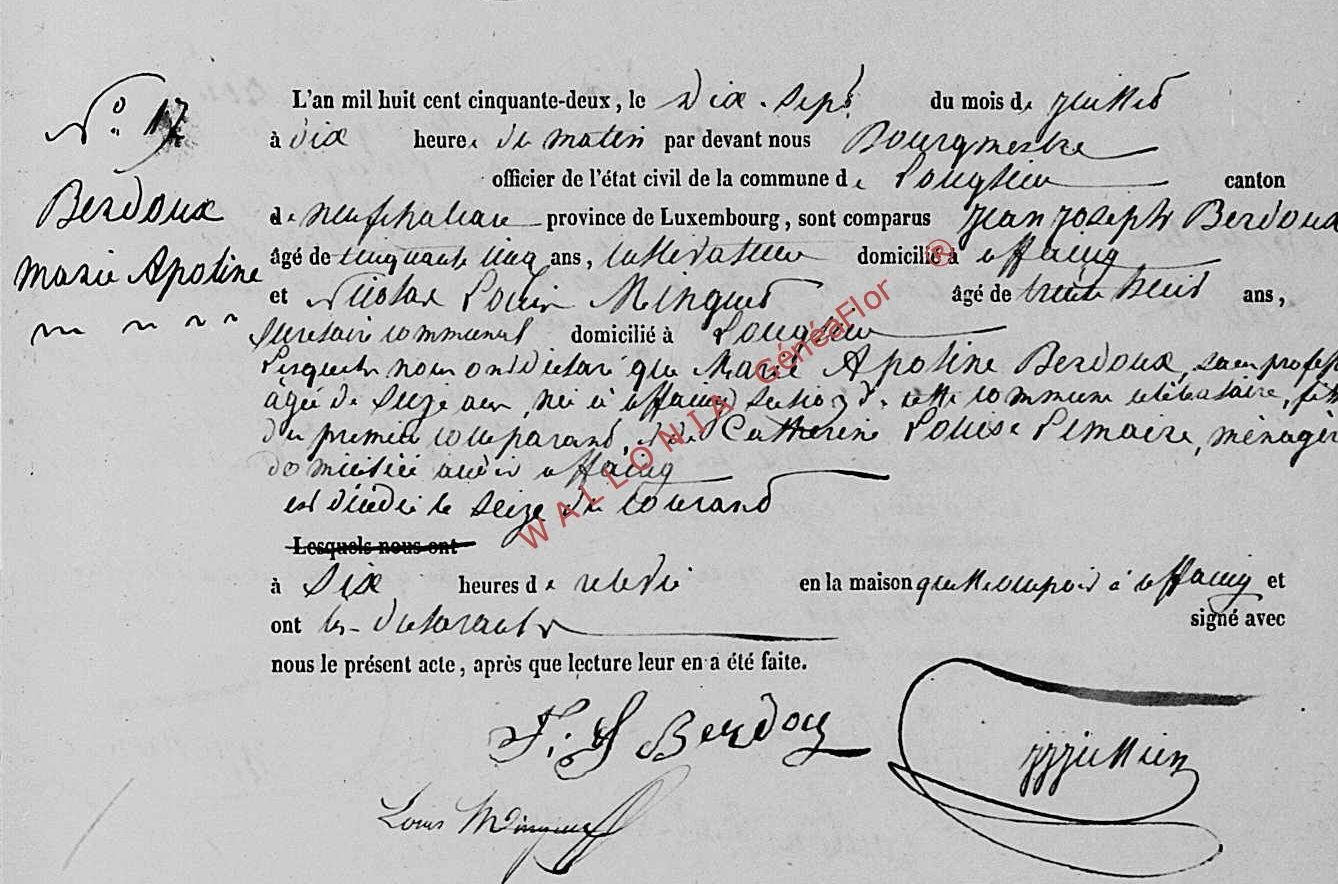 N° 17
Berdoux
Marie Apoline
L'an mil huit cent cinquante-deux, le Dix-sept du mois de juillet
à dix heures du matin par devant nous Bourgmestre
officier de l'état civil de la commune de Longlier canton
de neufchateau province de Luxembourg, sont comparus Jean Joseph Berdoux
âgé de cinquante cinq ans, cultivateur domicilié à offaing
et Nicolas Louis Minguet âgé de trente huit ans,
secretaire communal domicilié à Longlier
Lesquels nous ont déclaré que Marie Apoline Berdoux, sans profess
âgée de seize ans, née à offaing section de cette commune célibataire, fille
du premier comparant, et de Catherine Louise Lemaire, ménagère
domiciliée audit offaing
est décédée le seize du courant
Lesquels nous ont
à six heures de relevée en la maison qu'elle occupoit à offaing et
ont les déclarants signé avec
nous le présent acte, après que lecture leur en a été faite.
J. J Berdoux
Louis Minguet
WALLONIA GénéaFlor ®